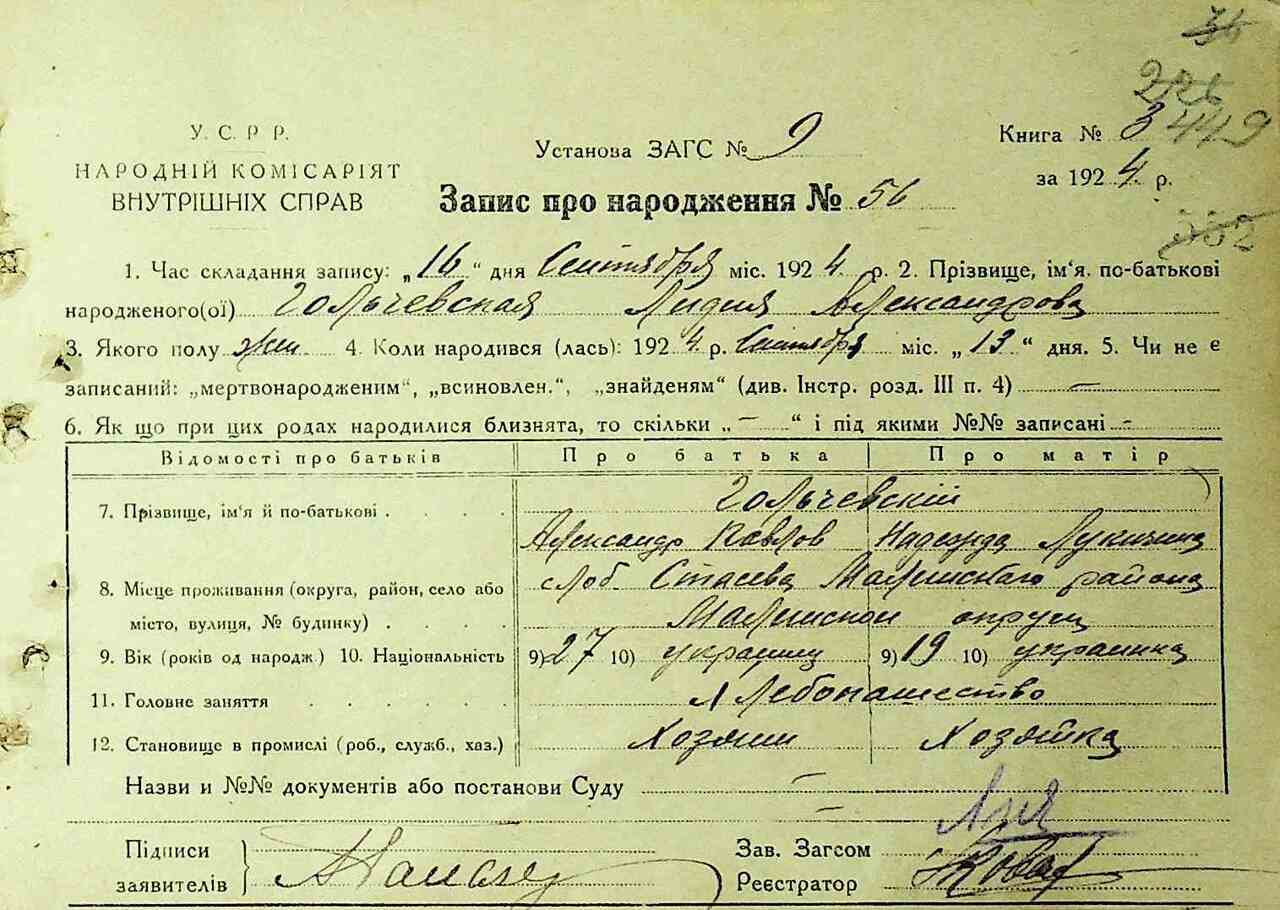 36
226
449
У. С. Р Р.
НАРОДНІЙ КОМІСАРІЯТ
ВНУТРІШНІХ СПРАВ
Установа ЗАГС № 9
Книга № 3
за 1924 р.
Запис про народження № 56
552
1. Час складання запису: „16“ дня Сентября міс. 1924 р. 2. Прізвище, ім'я. по-батькові
народженого(ої) Гольчевская Лидия Александрова
3. Якого полу жен 4. Коли народився (лась): 1924 р. Сентября міс. „13“ дня. 5. Чи не є
записаний: „мертвонародженим“, „всиновлен.“, „знайденям“ (див. Інстр. розд. III п. 4) —
6. Як що при цих родах народилися близнята, то скільки „ — “ і під якими №№ записані -
Відомості про батьків Про батька Про матір
7. Прізвище, ім'я й по-батькові . . . . Гольчевскій
Александр Павлов Надежда Лукичина
8. Місце проживання (округа, район, село або місто, вулиця, № будинку) . . . . слоб. Стасева района
округи
9. Вік (років од народж) 10. Національність 9) 27 10) украинец 9) 19 10) украинка
11. Головне заняття . . . . . . Хлебопашество
12. Становище в промислі (роб., служб., хаз.) Хозяин Хозяйка
Назви и №№ документів або постанови Суду —
Підписи
заявителів
Зав. Загсом
Реєстратор